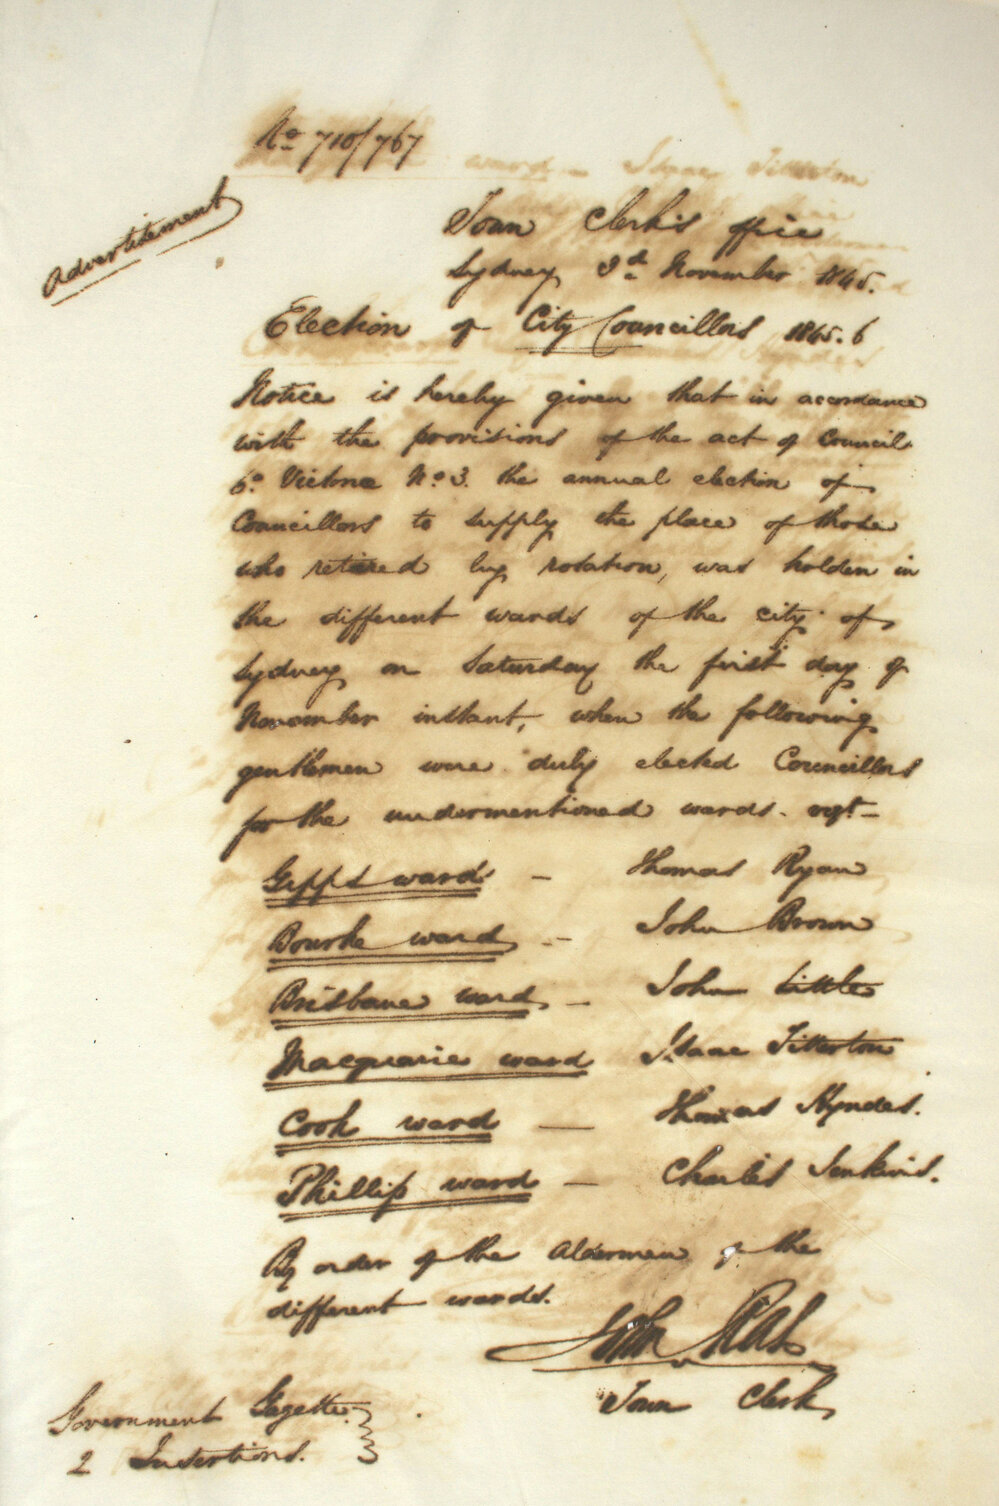 No 710/767
Advertisement
Town Clerk's Office
Sydney 3d November 1845.
Election of City Councillors 1845.6
Notice is hereby given that in accordance
with the provisions of the act of Council
6o Victoria No 3. the annual election of
Councillors to supply the place of those
who retired by rotation, was holden in
the different wards of the city of
Sydney on Saturday the first day of
November instant, when the following
gentlemen were duly elected Councillors
for the undermentioned wards.
Gipps ward - Thomas Ryan
Bourke ward - John Brown
Brisbane ward - John Little
Macquarie ward Isaac Titterton
Cook ward - Thomas Hyndes.
Phillip ward - Charles Jenkins.
By order of the Aldermen of the
different wards.
John
Town Clerk
Government Gazette
2 Insertions.